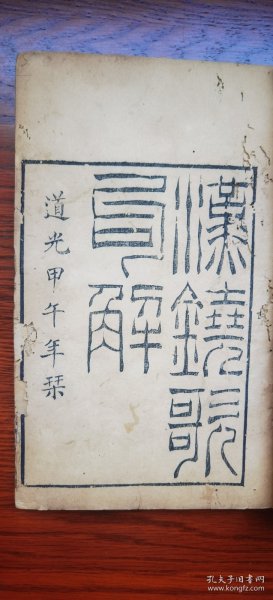 漢鐃歌
句解
道光甲午年栞
孔夫子旧书网
www.kongfz.com